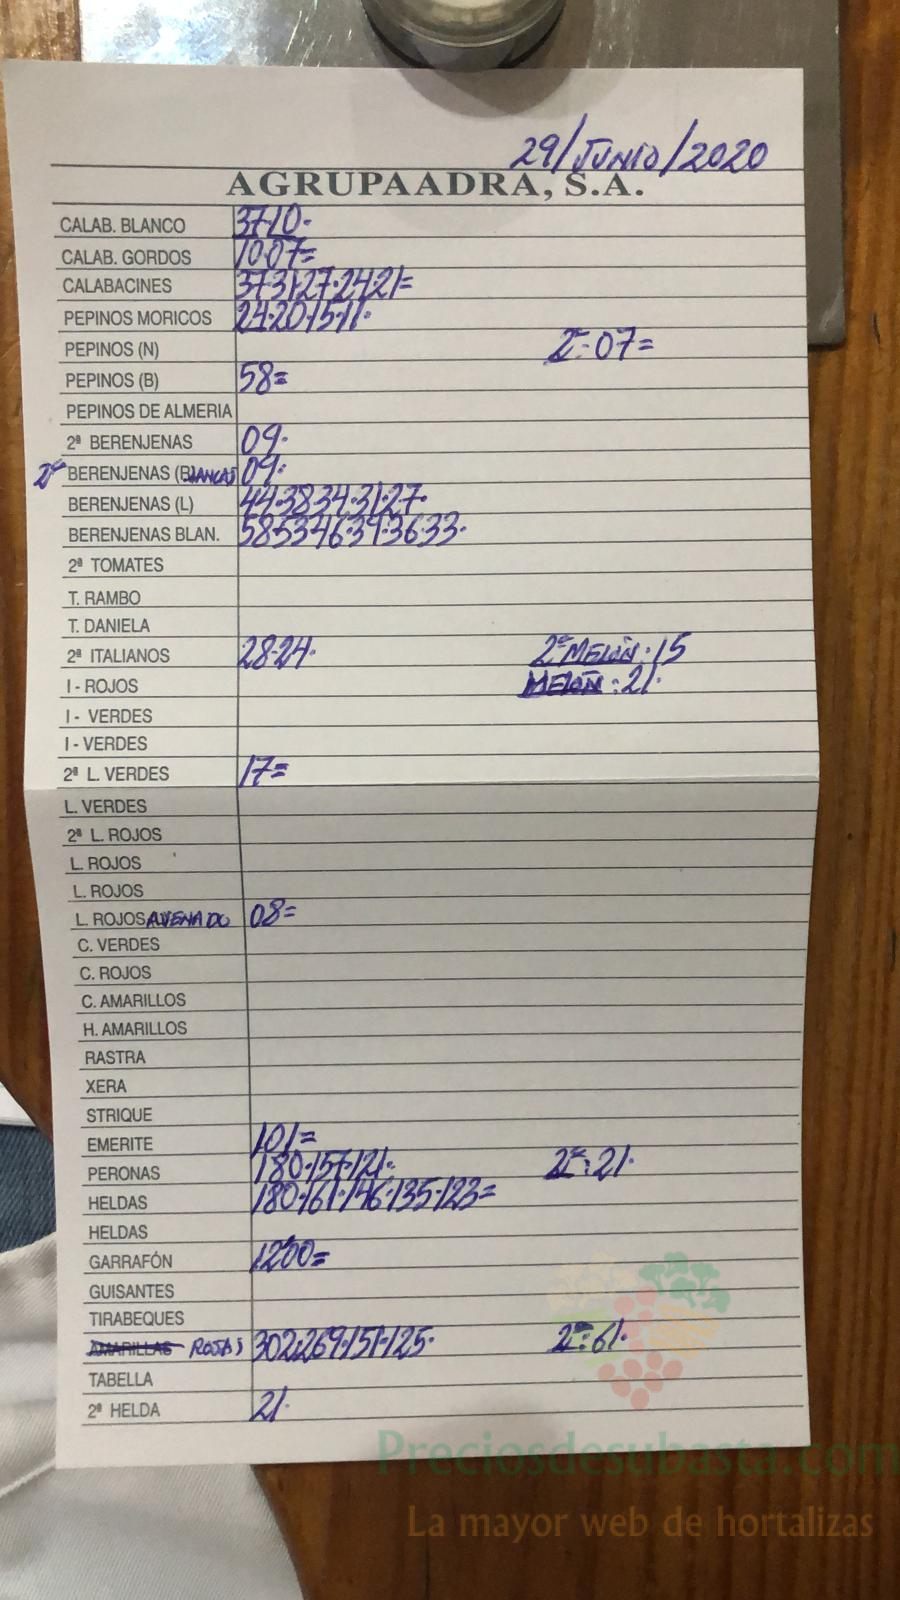 29/JUNIO/2020
AGRUPAADRA, S.A.
CALAB. BLANCO 37·10·
CALAB. GORDOS 10·07=
CALABACINES 37·31·27·24·21=
PEPINOS MORICOS 24·20·15·11·
PEPINOS (N) 2ª:07=
PEPINOS (B) 58=
PEPINOS DE ALMERIA
2ª BERENJENAS 09·
2ª BERENJENAS (BLANCAS) 09·
BERENJENAS (L) 44·38·34·31·27·
BERENJENAS BLAN. 58·53·46·39·36·33·
2ª TOMATES
T. RAMBO
T. DANIELA
2ª ITALIANOS 28·24· 2ª MELÓN:15
I - ROJOS MELÓN:21·
I - VERDES
I - VERDES
2ª L. VERDES 17=
L. VERDES
2ª L. ROJOS
L. ROJOS
L. ROJOS
L. ROJOS AVENADO 08=
C. VERDES
C. ROJOS
C. AMARILLOS
H. AMARILLOS
RASTRA
XERA
STRIQUE
EMERITE 101=
PERONAS 180·157·121· 2ª:21·
HELDAS 180·161·146·135·123=
HELDAS
GARRAFÓN 1200=
GUISANTES
TIRABEQUES
AMARILLAS ROJAS 302·269·151·125· 2ª:61·
TABELLA
2ª HELDA 21·
Preciosdesubasta.com
La mayor web de hortalizas